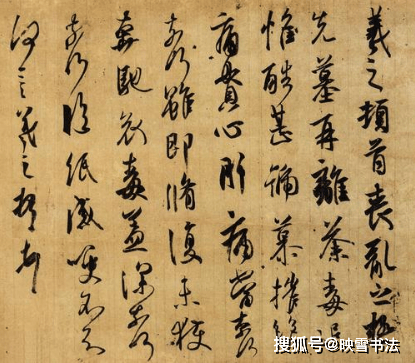 羲之頓首喪亂之極
先墓再離荼毒追
惟酷甚號慕摧絕
痛貫心肝痛當奈何
奈何雖即脩復未獲
奔馳哀毒益深奈何
奈何臨紙感哽不知
何言羲之頓首
搜狐号@映雪书法